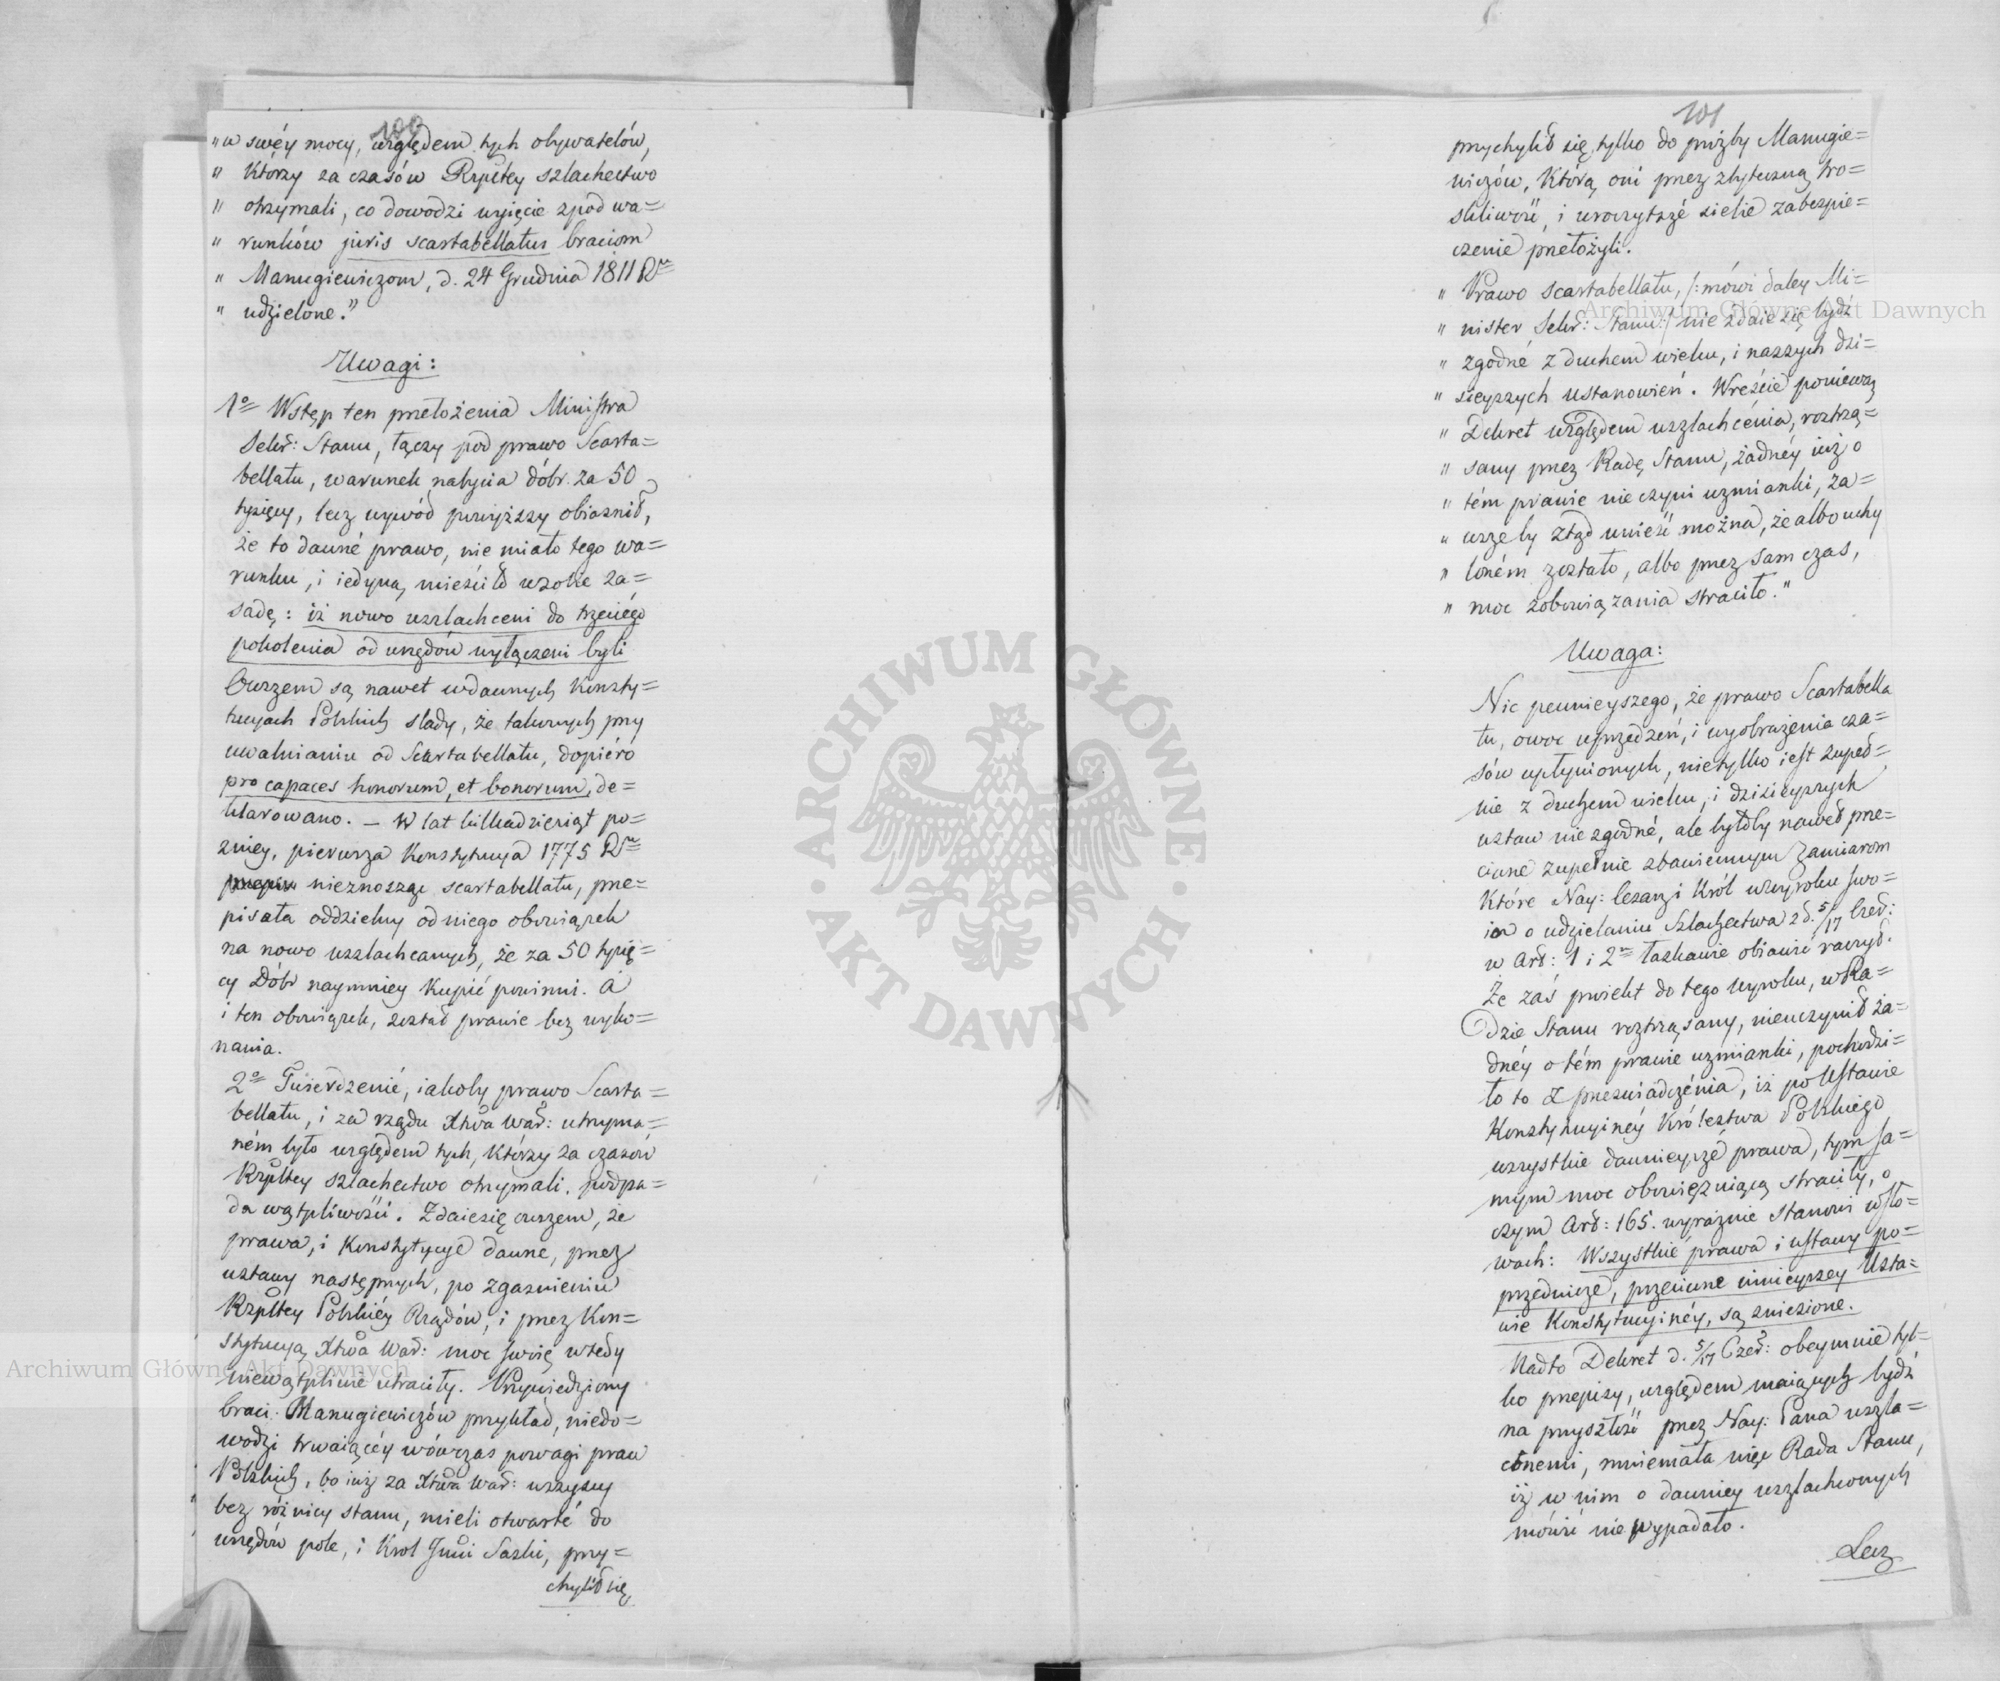 100
„w swéy mocy, względem tych obywatelów,
„ którzy za czasów Rzpltey szlachectwo
„ otrzymali, co dowodzi wyięcie zpod wa=
„ runków juris scartabellatus braciom
„ Manugiewiczom, d. 24 Grudnia 1811 Ru
„ udzielone."
Uwagi:
1o Wstęp ten przełożenia Ministra
Sekr: Stanu, łączy pod prawo Scarta=
bellatu, warunek nabycia dóbr za 50
tysięcy, lecz wywód powyższy obiasnił,
że to dawné prawo, nie miało tego wa=
runku, i iedyną mieścił w sobie za=
sadę: iż nowo uszlachceni do trzeciégo
pokolenia od urzędów wyłączeni byli
Owszem są nawet w dawnych Konsty=
tucyach Polskich slady, że takowych przy
uwalnianiu od Scartabellatu, dopiéro
pro capaces honorum, et bonorum, de=
klarowano. – W lat kilkadziesiąt po=
zniey, pierwsza Konstytucya 1775 Ru
nieznosząc scartabellatu, prze=
pisała oddzielny od niego obowiązek
na nowo uszlachcanych, że za 50 tysię=
cy Dóbr naymniey kupić powinni. A
i ten obowiązek, został prawie bez wyko=
nania.
2o Twierdzenié, iakoby prawo Scarta=
bellatu, i za rządu Xtwa War: utrzyma=
ném było względem tych, którzy za czasów
Rzpltey szlachectwo otrzymali, podpa=
da wątpliwości. Zdaie się owszem, że
prawa, i Konstytucye dawne, przez
ustawy następnych, po zgasnieniu
Rzpltey Polskiéy Rządów, i przez Kon=
stytucyą Xtwa War: moc swoię wtedy
niewątpliwie utraciły. Przywiedziony
braci Manugiewiczów przykład, niedo=
wodzi trwaiącéy wówczas powagi praw
Polskich, bo iuż za Xtwa War: wszyscy
bez różnicy stanu, mieli otwarté do
urzędów pole, i Krol Jmci Saski, przy=
chylił się
101
przychylił się tylko do proźby Manugie=
wiczów, którą oni przez zbyteczną tro=
skliwość, i uroczystszé siebie zabezpie=
czenie przełożyli.
„ Prawo scartabellatu, /: mówi daley Mi=
„ nister Sekr: Stanu:/ nie zdaie się bydź
„ zgodné z duchem wieku, i naszych dzi=
„ sieyszych ustanowień. Wreście ponieważ
„ Dekret względem uszlachcénia, roztrzą=
„ sany przez Radę Stanu, żadnéy iuż o
„ tém prawie nie czyni wzmianki, za=
„ wsze by ztąd wnieść można, że albo uchy
„ loném zostało, albo przez sam czas,
„ moc zobowiązania straciło."
Uwaga:
Nic pewnieyszego, że prawo Scartabella
tu, owoc uprzedzeń, i wyobrażenia cza=
sów upłynionych, nietylko iest zupeł=
nie z duchem wieku, i dzisieyszych
ustaw niezgodné, ale byłoby nawet prze=
ciwne zupełnie zbawiennym zamiarom
które Nay: Cesarz i Król w wyroku swo=
im o udzielaniu Szlachectwa z d. 5/17 Czer:
w Art: 1 i 2m łaskawie obiawić raczył.
Że zaś proiekt do tego wyroku, w Ra=
dzie Stanu roztrząsany, nieuczynił ża=
dnéy o tém prawie wzmianki, pochodzi=
ło to z przeświadczénia, iż po Ustawie
Konstytucyinéy Królestwa Polskiego
wszystkie dawnieyszé prawa, tym sa=
mym moc obowięzuiącą straciły, o
czym Art: 165. wyraznie stanowi w sło=
wach: Wszystkie prawa i ustawy po=
przednicze, przeciwne ninieyszey Usta=
wie Konstytucyinéy, są zniesione.
Nadto Dekret d. 5/17 Czer: obeymuie tyl=
ko przepisy, względem maiących bydź
na przyszłość przez Nay: Pana uszla=
chconemi, mniemała więc Rada Stanu,
iż w nim o dawniey uszlachconych
mówić nie wypadało.
Lecz
ARCHIWUM GŁÓWNE
AKT DAWNYCH
Archiwum Główne Akt Dawnych
Archiwum Główne Akt Dawnych